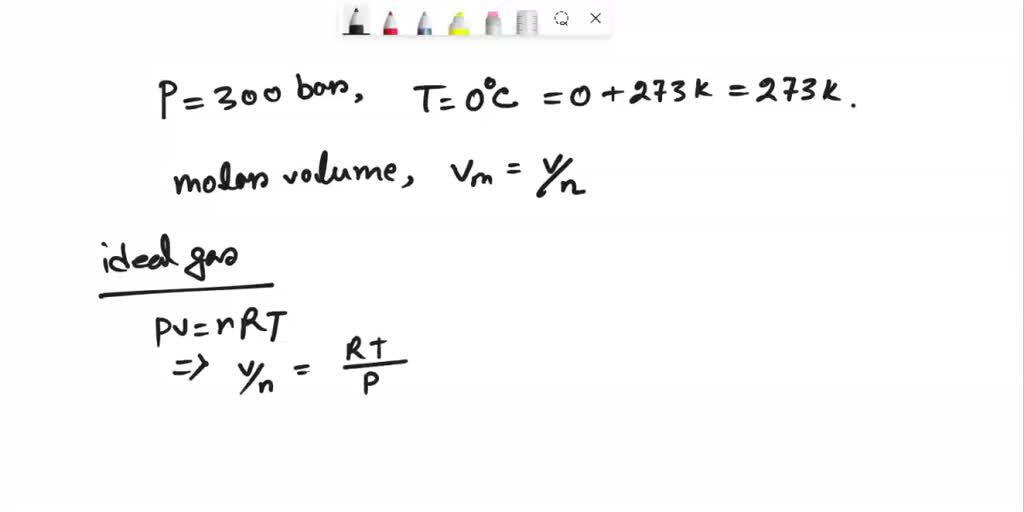 P = 300 bars, T = 0°C = 0 + 273 K = 273 K.
molar volume, Vm = V/n
ideal gas
PV = nRT
=> V/n = RT/P